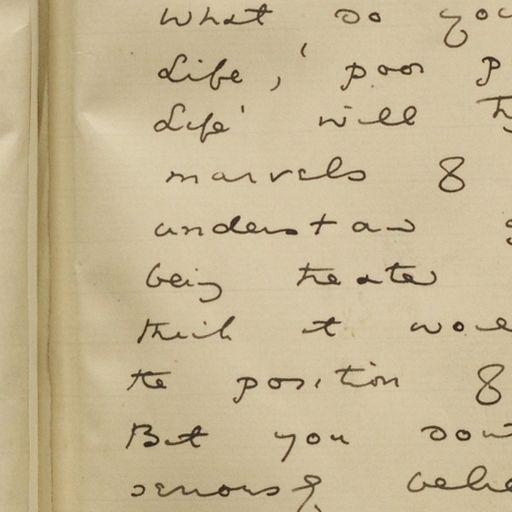 What do you
Life, ' poor p
Life' will try
marvels of
understand
being treated
think it wou
the position of
But you don
seriously belie